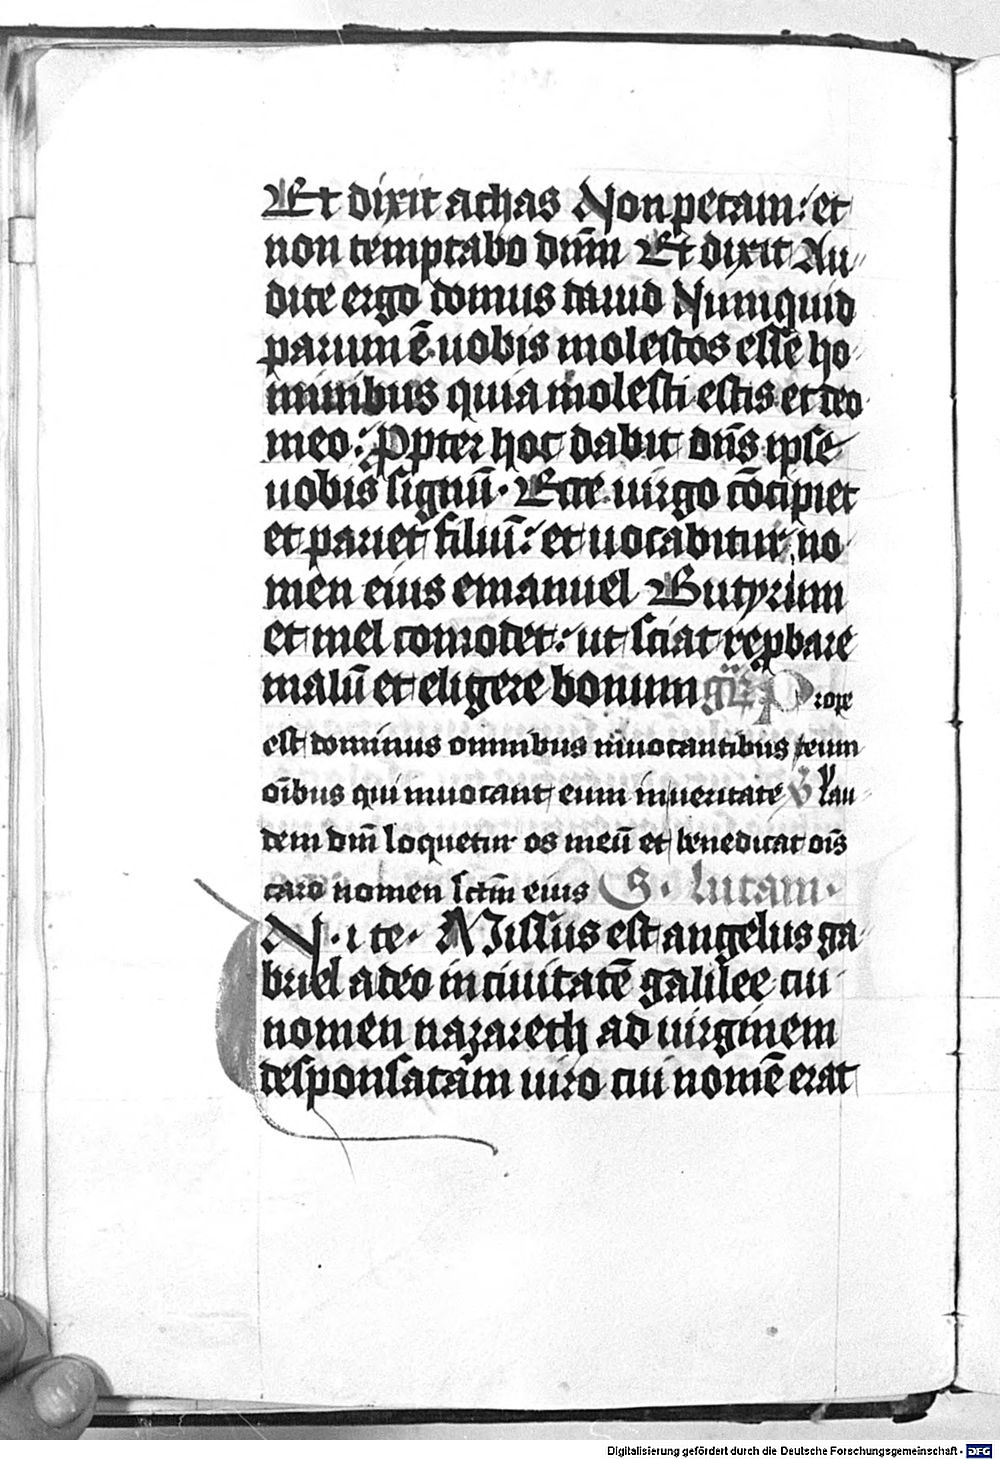 Et dixit achas Non petam: et
non temptabo dn̄m Et dixit Au⸗
dite ergo domus dauid Numquid
parum ē uobis molestos esse ho⸗
minibus quia molesti estis et deo
meo: Ppter hoc dabit dn̄s ipse
uobis signū. Ecce uirgo cōcipiet
et pariet filiū: et uocabitur no⸗
men eius emanuel Butyrum
et mel comodet: ut sciat repbare
malū et eligere bonum gr̄ Prope
est dominus omnibus inuocantibus eum
oībus qui inuocant eum in ueritate V Lau⸗
dem dn̄i loquetur os meū et benedicat oīs
caro nomen sctm̄ eius S. lucam.
N. i te. Missus est angelus ga⸗
briel a deo in ciuitatē galilee cui
nomen nazareth ad uirginem
desponsatam uiro cui nomē erat
Digitalisierung gefördert durch die Deutsche Forschungsgemeinschaft - DFG